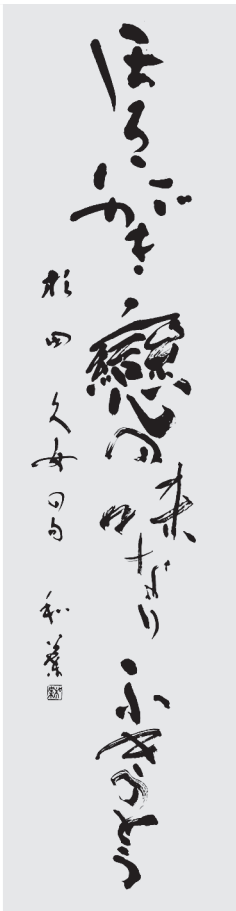 ほろにがき
戀の
味なり
ふきのとう
杉田久女の句